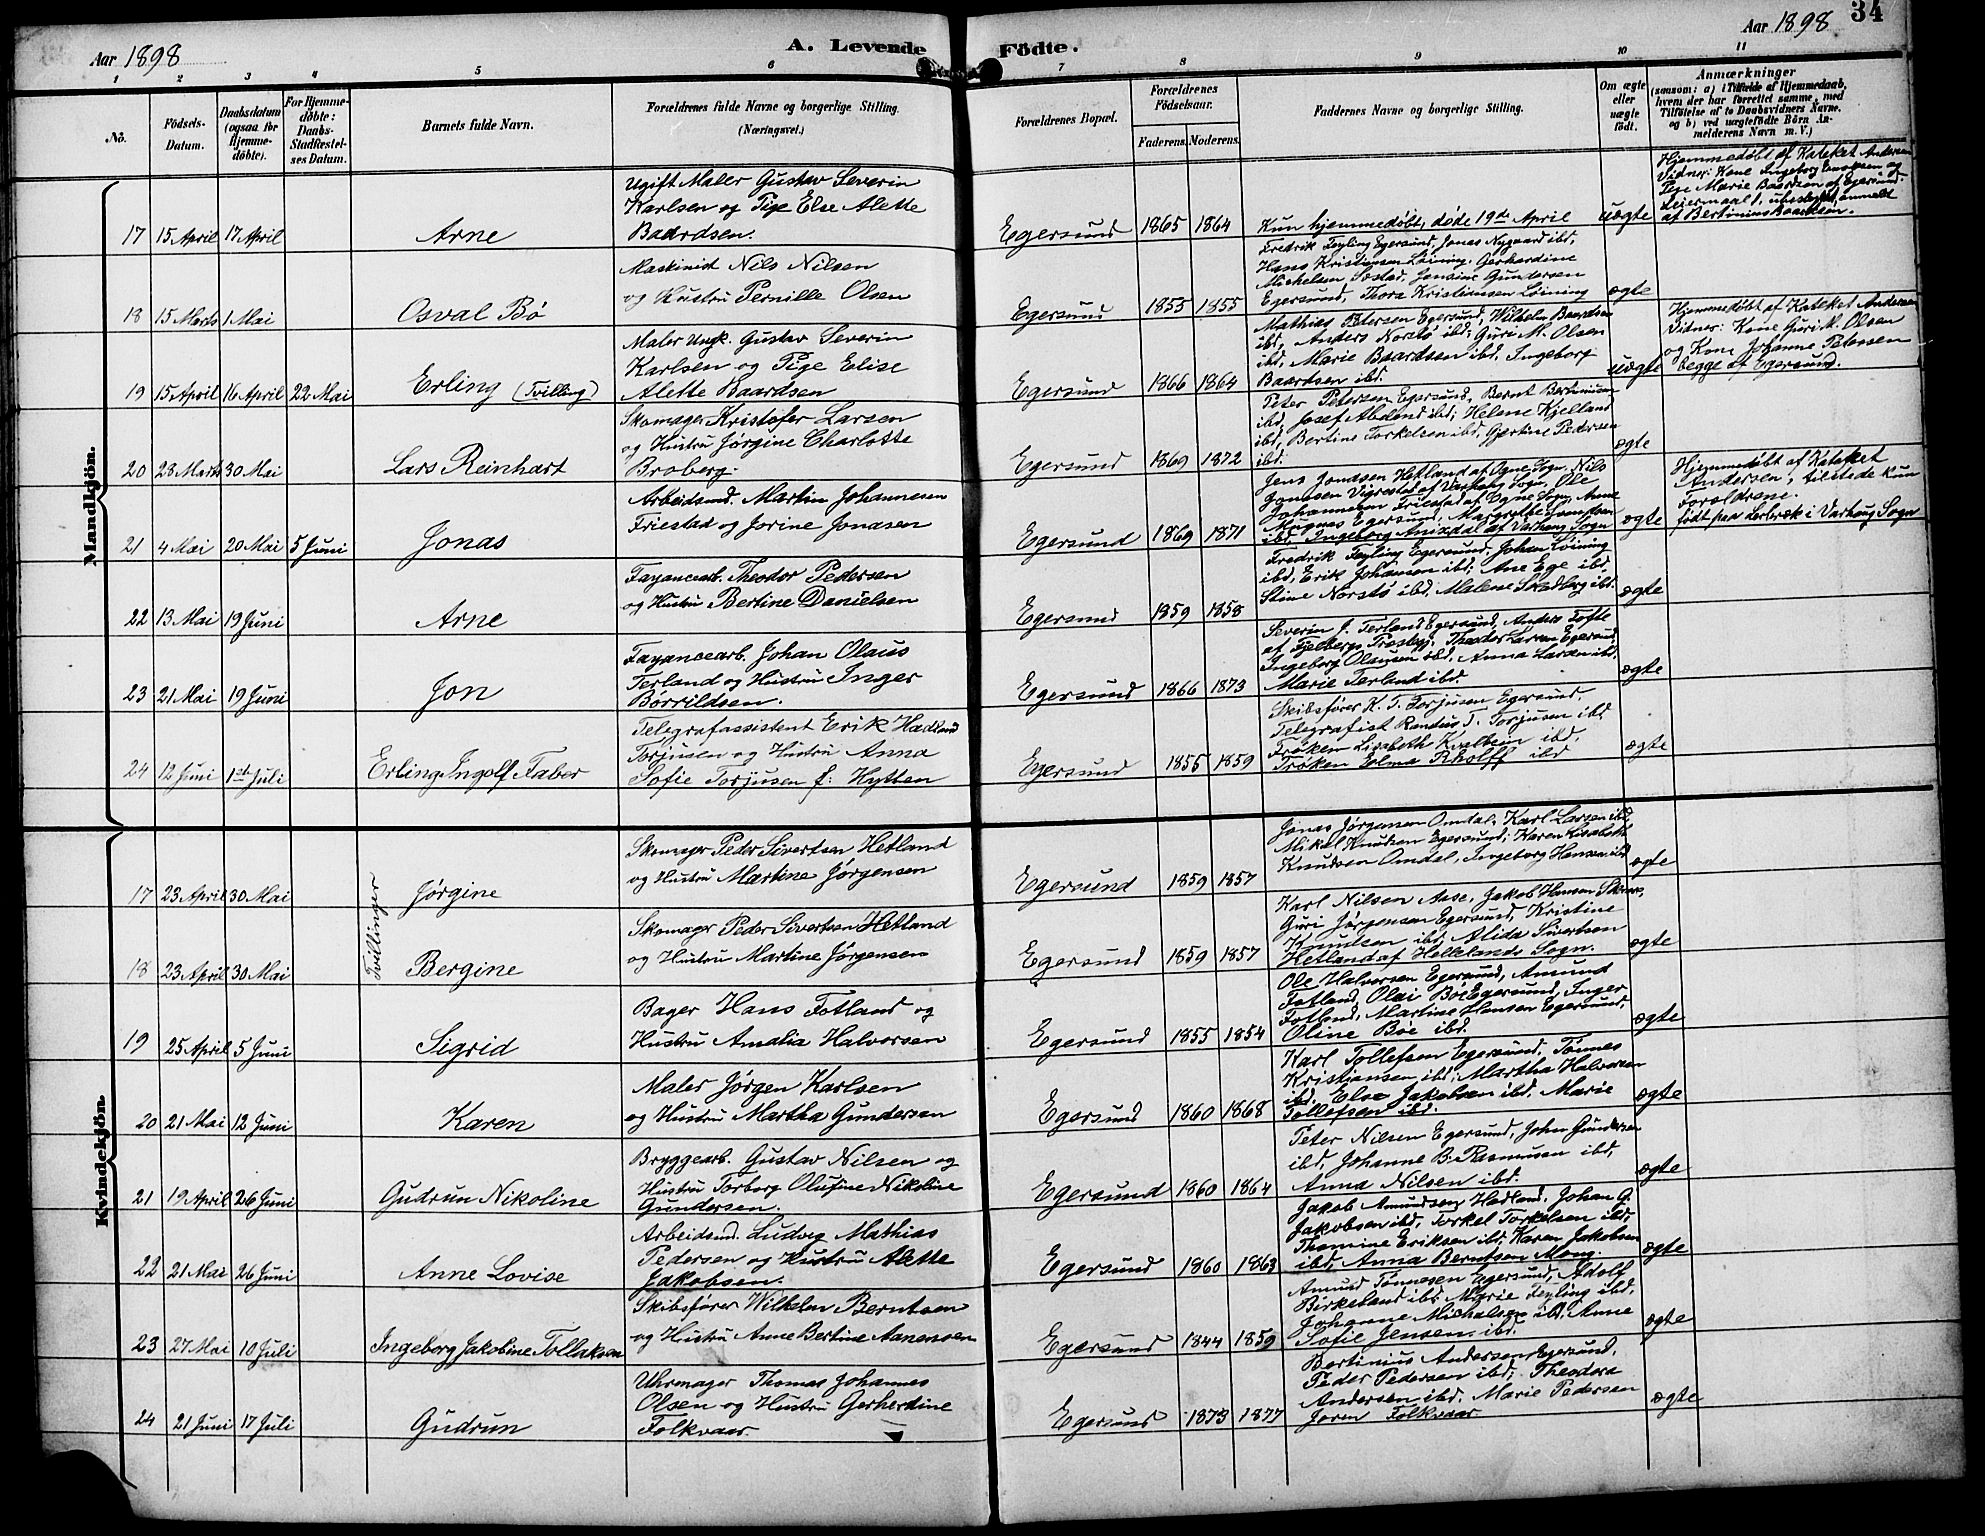 Aar 1898
A. Levende Födte.
Aar 1898
34
1 2 3 4 5 6 7 8 9 10 11
No.
Födsels-Datum.
Daabsdatum (ogsaa for Hjemmedöbte).
For Hjemmedöbte: Daabs-Stadfæstelses Datum.
Barnets fulde Navn.
Forældrenes fulde Navne og borgerlige Stilling. (Næringsvei.)
Forældrenes Bopæl.
Forældrenes Födselsaar.
Faderens. Moderens.
Faddernes Navne og borgerlige Stilling.
Om ægte eller uægte födt.
Anmærkninger
(saasom: a) i Tilfælde af Hjemmedaab, hvem der har forrettet samme, med Tilföielse af to Daabsvidners Navne, og b) ved uægtefödte Börn Anmelderens Navn m. V.)
Mandkjön.
17 15 April 17 April Arne
Ugift Maler Gustav Severin
Karlsen og Pige Else Alette
Baardsen.
Egersund 1865 1864
Kun hjemmedøbt, døde 19de April
uægte
Hjemmedøbt af Kateket Andersen
Vidner: Kone Ingeborg
Pige Marie Baardsen af Egersund.
Leiermaal 1, anmeldt
af Bertinius Baardsen.
18 15 Marts 1 Mai Osval Bø
Maskinist Nils Nilsen
og Hustru Pernille Olsen
Egersund 1855 1855
Fredrik Føyling Egersund, Jonas Nygaard ibd,
Hans Kristiansen Løining, Gerhardine
Michelsen Sostad, Jensine Gundersen
Egersund, Thora Kristiansen Løining
ægte
19 15 April 16 April 22 Mai Erling (Tvilling)
Maler Ungk. Gustav Severin
Karlsen og Pige Elise
Alette Baardsen
Egersund 1866 1864
Mathias Petersen Egersund, Wilhelm Baardsen
ibd, Anders Norstø ibd; Guri M. Olsen
ibd, Marie Baardsen ibd, Ingeborg
Baardsen ibd.
uægte
Hjemmedøbt af Kateket Andersen
Vidner: Kone Guri M. Olsen
og Kone Johanne Petersen
begge af Egersund.
20 28 Marts 30 Mai Lars Reinhart
Skomager Kristofer Larsen
og Hustru Jørgine Charlotte
Broberg.
Egersund 1869 1872
Peter Petersen Egersund, Bernt Bertinius
ibd, Josef Abeland ibd; Helene Kjelland
ibd, Bertine Torkelsen ibd, Gjertine Pedersen
ibd.
ægte
21 4 Mai 20 Mai 5 Juni Jonas
Arbeidsmd. Martin Johannesen
Friestad og Jorine Jonasen
Egersund 1869 1871
Jens Jonassen Hetland af Ogne Sogn, Nils
Jonasen Vigrestad af Varhaug Sogn, Ole
Johannesen Friestad af Ogne Sogn, Anne
Magnus Egersund, Margrethe Svendsen
ibd, Ingeborg Anixdal af Varhaug Sogn
ægte
Hjemmedøbt af Kateket
Andersen, tilstede kun
Forældrene.
født paa Lerbræk i Varhaug Sogn
22 13 Mai 19 Juni Arne
Fayancearb. Theodor Pedersen
og Hustru Bertine Danielsen
Egersund 1859 1858
Fredrik Føyling Egersund, Johan Løining
ibd, Erik Johansen ibd; Ane Ege ibd,
Stine Norstø ibd, Malene Skadberg ibd.
ægte
23 21 Mai 19 Juni Jon
Fayancearb. Johan Olaus
Terland og Hustru Inger
Børrildsen.
Egersund 1866 1873
Severin J. Terland Egersund, Anders Tofte
af Fjelbergs Præstegj. Theodor Larsen Egersund,
Ingeborg Olausen ibd, Anna Larsen ibd,
Marie Terland ibd.
ægte
24 12 Juni 1ste Juli Erling Ingolf Faber
Telegrafassistent Erik Hadland
Torjusen og Hustru Anna
Sofie Torjusen f: Hytten
Egersund 1855 1859
Skibsfører K. T. Torjusen Egersund,
Telegrafist Randus T. Torjusen ibd,
Frøken Lisebeth Kvalbein ibd,
Frøken Elma Rholff ibd
ægte
Kvindekjön.
17 23 April 30 Mai Jørgine
Tvillinger
Skomager Peder Sivertsen Hetland
og Hustru Martine Jørgensen
Egersund 1859 1857
Jonas Jørgensen Omdal, Karl Larsen ibd,
Mikal Knudsen Egersund; Karen Lisabeth
Knudsen Omdal, Ingeborg Hansen ibd
ægte
18 23 April 30 Mai Bergine
Skomager Peder Sivertsen Hetland
og Hustru Martine Jørgensen
Egersund 1859 1857
Karl Nilsen Aase, Jakob Hansen
Guri Jørgensen Egersund, Kristine
Knudsen ibd, Alida Sivertsen
Hetland af Hellelands Sogn.
ægte
19 25 April 5 Juni Sigrid
Bager Hans Fotland og
Hustru Amalia Halvorsen
Egersund 1855 1854
Ole Halvorsen Egersund, Amund
Fotland, Olai Bøe Egersund, Inger
Fotland, Martine Hansen Egersund,
Oline Bøe ibd.
ægte
20 21 Mai 12 Juni Karen
Maler Jørgen Karlsen
og Hustru Martha Gundersen
Egersund 1860 1868
Karl Tollefsen Egersund, Tønnes
Kristiansen ibd; Martha Halvorsen
ibd, Else Jakobsen ibd, Marie
Tollefsen ibd.
ægte
21 19 April 26 Juni Gudrun Nikoline
Bryggearb. Gustav Nilsen og
Hustru Torborg Olufine Nikoline
Gundersen.
Egersund 1860 1864
Peter Nilsen Egersund, John Gundersen
ibd, Johanne B. Rasmusen ibd,
Anna Nilsen ibd.
ægte
22 21 Mai 26 Juni Anne Lovise
Arbeidsmd. Ludvig Mathias
Pedersen og Hustru Alette
Jakobsen.
Egersund 1860 1863
Jakob Amundsen Hadland, Johan G.
Jakobsen ibd, Torkel Torkelsen ibd;
Thomine Eriksen ibd, Karen Jakobsen
ibd, Anna Berntsen Mong.
ægte
23 27 Mai 10 Juli Ingeborg Jakobine Tollaksen
Skibsfører Wilhelm Berntsen
og Hustru Anne Bertine Aanensen
Egersund 1844 1859
Amund Tønnesen Egersund, Adolf
Birkeland ibd; Marie Føyling ibd,
Johanne Michalsen ibd, Anne
Sofie Jensen ibd.
ægte
24 21 Juni 17 Juli Gudrun
Uhrmager Thomas Johannes
Olsen og Hustru Gerherdine
Folkvaar.
Egersund 1873 1877
Bertinius Andersen Egersund,
Peder Pedersen ibd; Theodora
Andersen ibd, Marie Pedersen
Joren Folkvaar
ægte